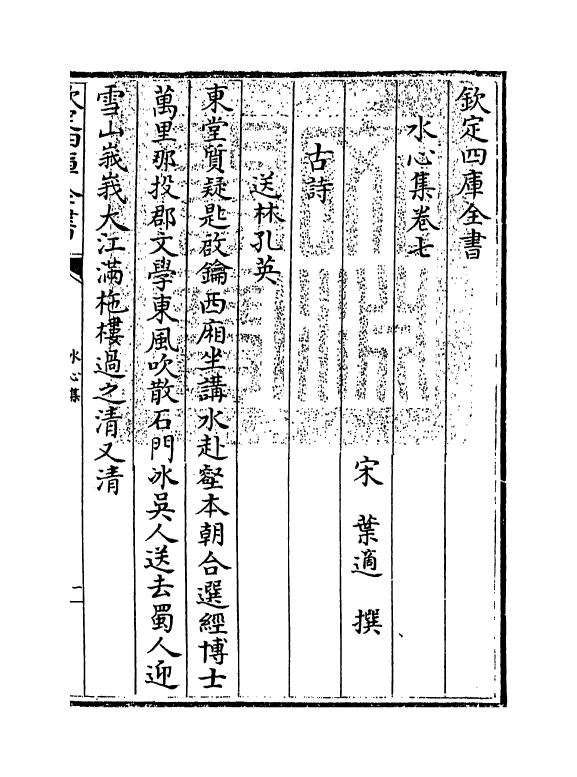 欽定四庫全書
水心集卷七
宋 葉適 撰
古詩
送林孔英
東堂質疑匙啟鑰西廂坐講水赴壑本朝合選經博士
萬里那投郡文學東風吹散石門冰吳人送去蜀人迎
雪山峩峩大江滿柂樓過之清又清
欽定四庫全書
水心集
一